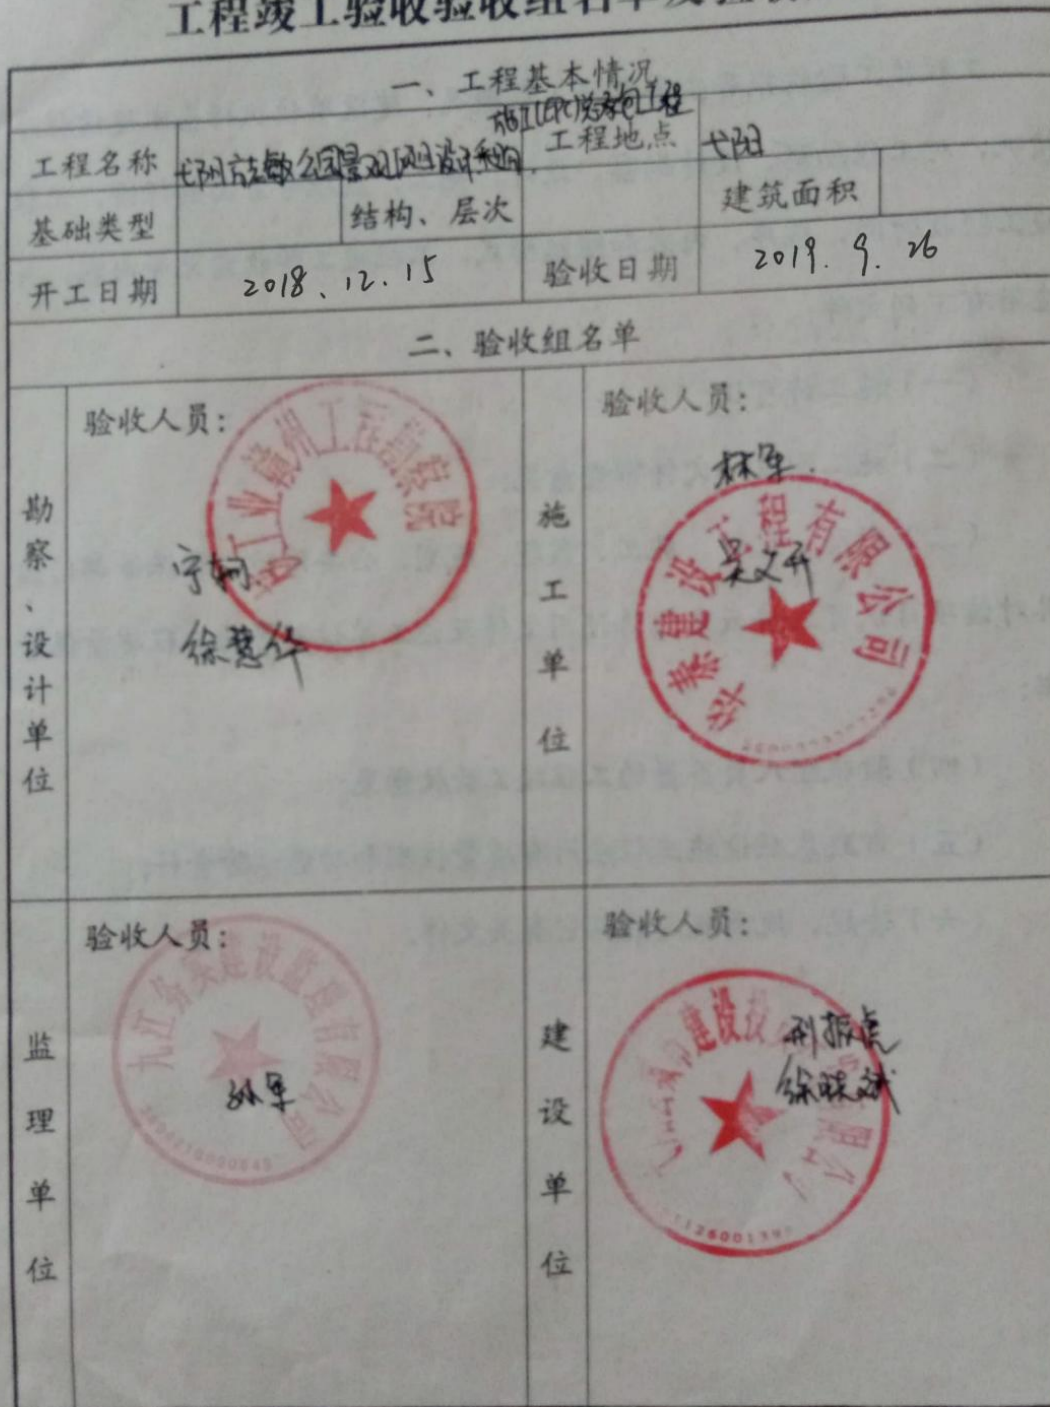 工程竣工验收验收组名单及验收
一、工程基本情况
工程名称 弋阳方志敏公园景观园设计采购施工(EPC)总承包工程 工程地点 弋阳
基础类型 结构、层次 建筑面积
开工日期 2018.12.15 验收日期 2019.9.26
二、验收组名单
勘察、设计单位
验收人员:
工业赣州工程勘察院
徐慧华
施工单位
验收人员:
林军.
吴文开
华綦建设工程有限公司
监理单位
验收人员:
九江务实建设监理有限公司
孙军
建设单位
验收人员:
建设投
限公
邢振虎
徐晓斌